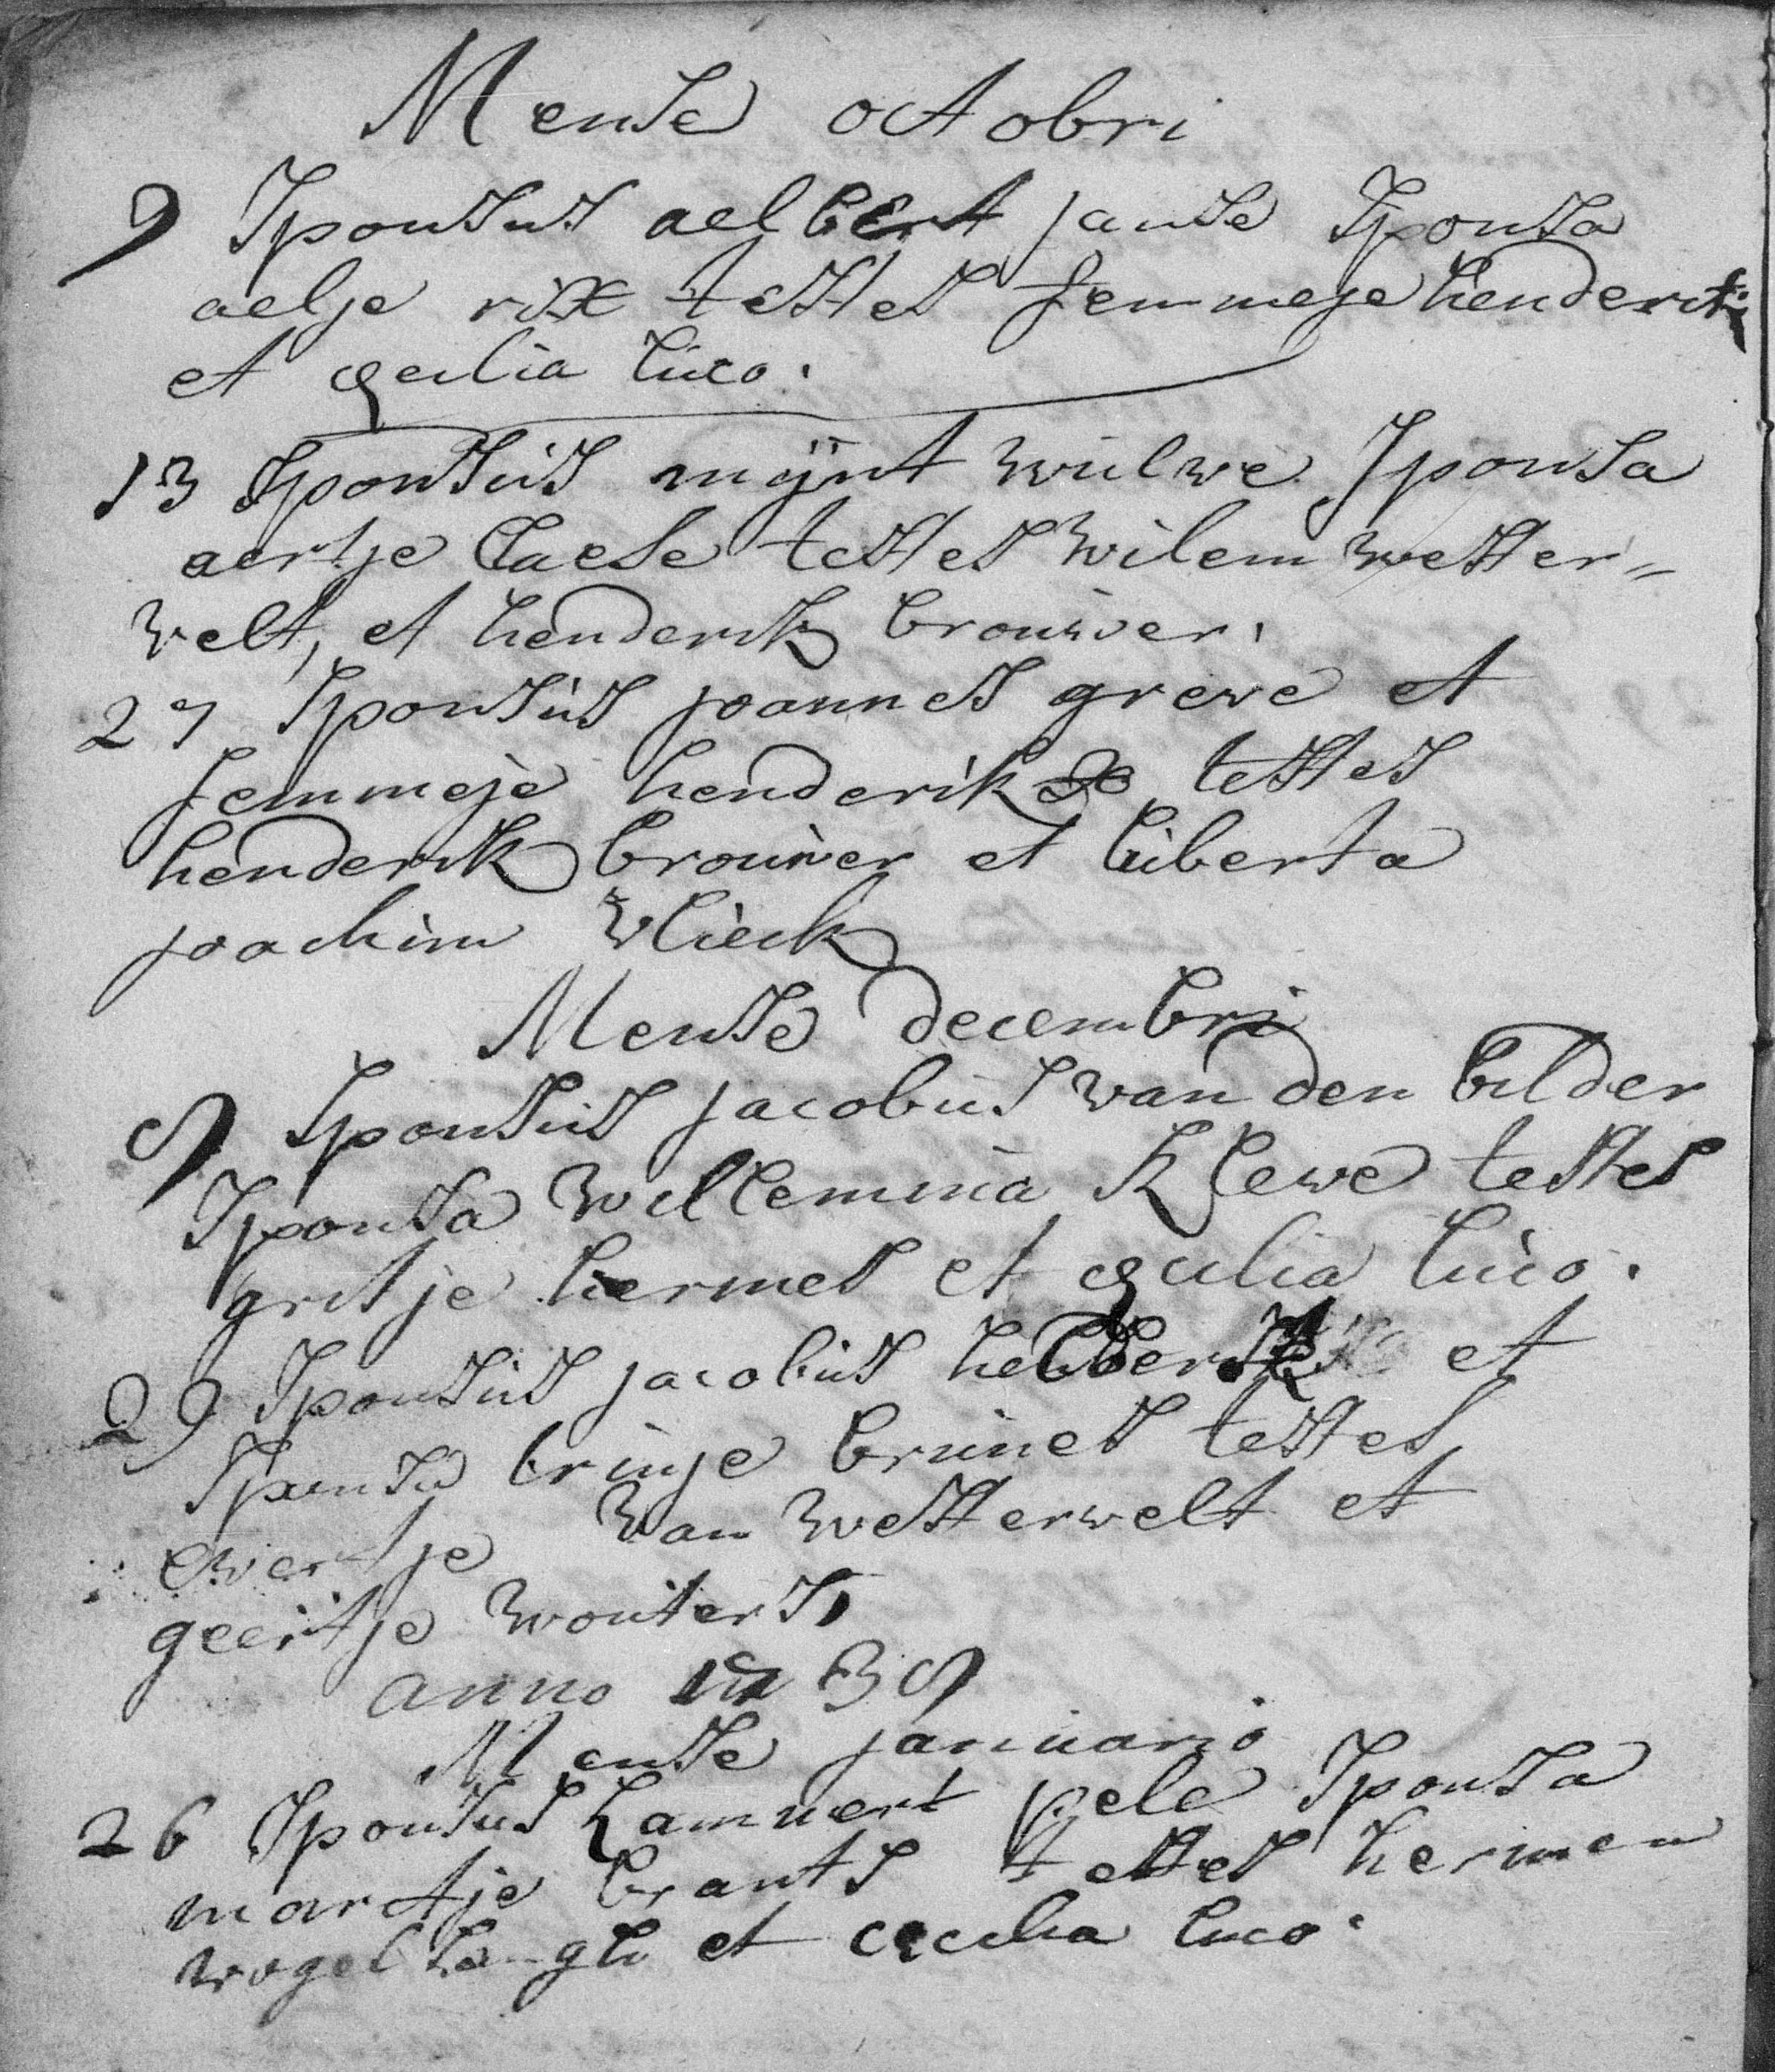 Mense octobri
9 Sponsus aelbert janse Sponsa
aelje rix testes femmeje henderik
et cecilia luco.
13 Sponsus mijnt wulwe Sponsa
aertje claese testes wilem wester=
welt, et henderik brouwer.
27 Sponsus joannes greve et
femmeje henderikse testes
henderik brouwer et luberta
joachim vlieck
Mense decembri
9 Sponsus jacobus van den bilder
Sponsa willemina Klewe testes
gritje hermes et cecilia luco.
29 Sponsus jacobus et
Sponsa brinje brunes testes
evertje van westerwelt et
geertje wouters
anno 1739
Mense januario
26 Sponsus Lammert gele Sponsa
martje brants testes hermen
et cecilia luco.